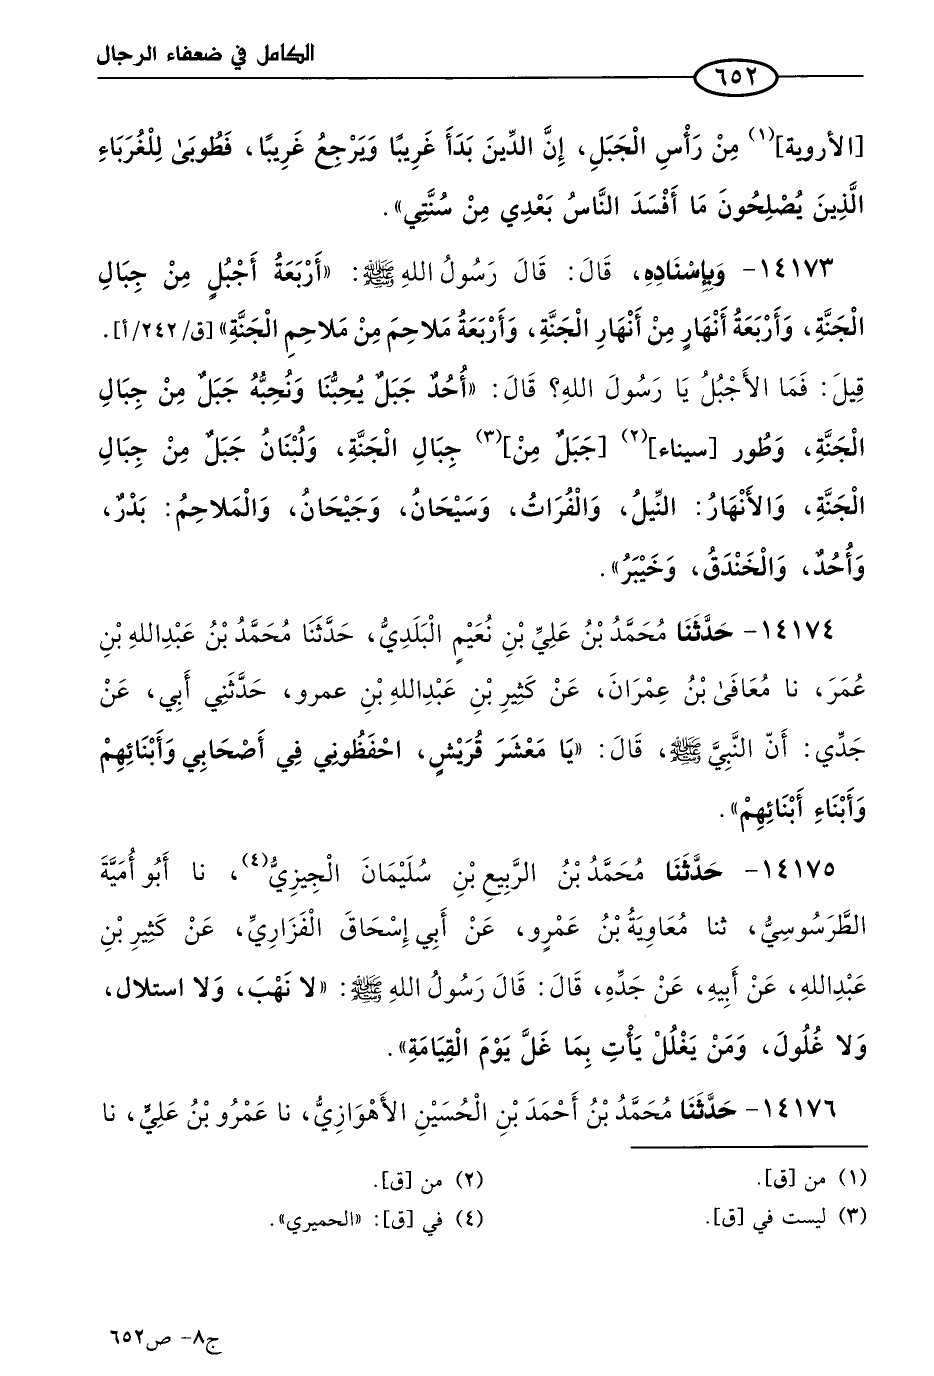 الكامل في ضعفاء الرجال
٦٥٢
[الأروية](١) مِنْ رَأْسِ الْجَبَلِ، إِنَّ الدِّينَ بَدَأَ غَرِيبًا وَيَرْجِعُ غَرِيبًا، فَطُوبَىٰ لِلْغُرَبَاءِ
الَّذِينَ يُصْلِحُونَ مَا أَفْسَدَ النَّاسُ بَعْدِي مِنْ سُنَّتِي».
١٤١٧٣- وَبِإِسْنَادِهِ، قَالَ: قَالَ رَسُولُ اللهِ ﷺ: «أَرْبَعَةُ أَجْبُلٍ مِنْ جِبَالِ
الْجَنَّةِ، وَأَرْبَعَةُ أَنْهَارٍ مِنْ أَنْهَارِ الْجَنَّةِ، وَأَرْبَعَةُ مَلاحِمَ مِنْ مَلاحِمِ الْجَنَّةِ» [ق/٢٤٢/أ].
قِيلَ: فَمَا الأَجْبُلُ يَا رَسُولَ اللهِ؟ قَالَ: «أُحُدٌ جَبَلٌ يُحِبُّنَا وَنُحِبُّهُ جَبَلٌ مِنْ جِبَالِ
الْجَنَّةِ، وَطُور [سيناء](٢) [جَبَلٌ مِنْ](٣) جِبَالِ الْجَنَّةِ، وَلُبْنَانُ جَبَلٌ مِنْ جِبَالِ
الْجَنَّةِ، وَالأَنْهَارُ: النِّيلُ، وَالْفُرَاتُ، وَسَيْحَانُ، وَجَيْحَانُ، وَالْمَلاحِمُ: بَدْرٌ،
وَأُحُدٌ، وَالْخَنْدَقُ، وَخَيْبَرُ».
١٤١٧٤- حَدَّثَنَا مُحَمَّدُ بْنُ عَلِيِّ بْنِ نُعَيْمٍ الْبَلَدِيُّ، حَدَّثَنَا مُحَمَّدُ بْنُ عَبْدِاللهِ بْنِ
عُمَرَ، نا مُعَافَىٰ بْنُ عِمْرَانَ، عَنْ كَثِيرِ بْنِ عَبْدِاللهِ بْنِ عمرو، حَدَّثَنِي أَبِي، عَنْ
جَدِّي: أَنّ النَّبِيَّ ﷺ، قَالَ: «يَا مَعْشَرَ قُرَيْشٍ، احْفَظُونِي فِي أَصْحَابِي وَأَبْنَائِهِمْ
وَأَبْنَاءِ أَبْنَائِهِمْ».
١٤١٧٥- حَدَّثَنَا مُحَمَّدُ بْنُ الرَّبِيعِ بْنِ سُلَيْمَانَ الْجِيزِيُّ(٤)، نا أَبُو أُمَيَّةَ
الطَّرَسُوسِيُّ، ثنا مُعَاوِيَةُ بْنُ عَمْرٍو، عَنْ أَبِي إِسْحَاقَ الْفَزَارِيِّ، عَنْ كَثِيرِ بْنِ
عَبْدِاللهِ، عَنْ أَبِيهِ، عَنْ جَدِّهِ، قَالَ: قَالَ رَسُولُ اللهِ ﷺ: «لا نَهْبَ، وَلا استلال،
وَلا غُلُولَ، وَمَنْ يَغْلُلْ يَأْتِ بِمَا غَلَّ يَوْمَ الْقِيَامَةِ».
١٤١٧٦- حَدَّثَنَا مُحَمَّدُ بْنُ أَحْمَدَ بْنِ الْحُسَيْنِ الأَهْوَازِيُّ، نا عَمْرُو بْنُ عَلِيٍّ، نا
(١) من [ق].
(٢) من [ق].
(٣) ليست في [ق].
(٤) في [ق]: «الحميري».
ج٨- ص٦٥٢